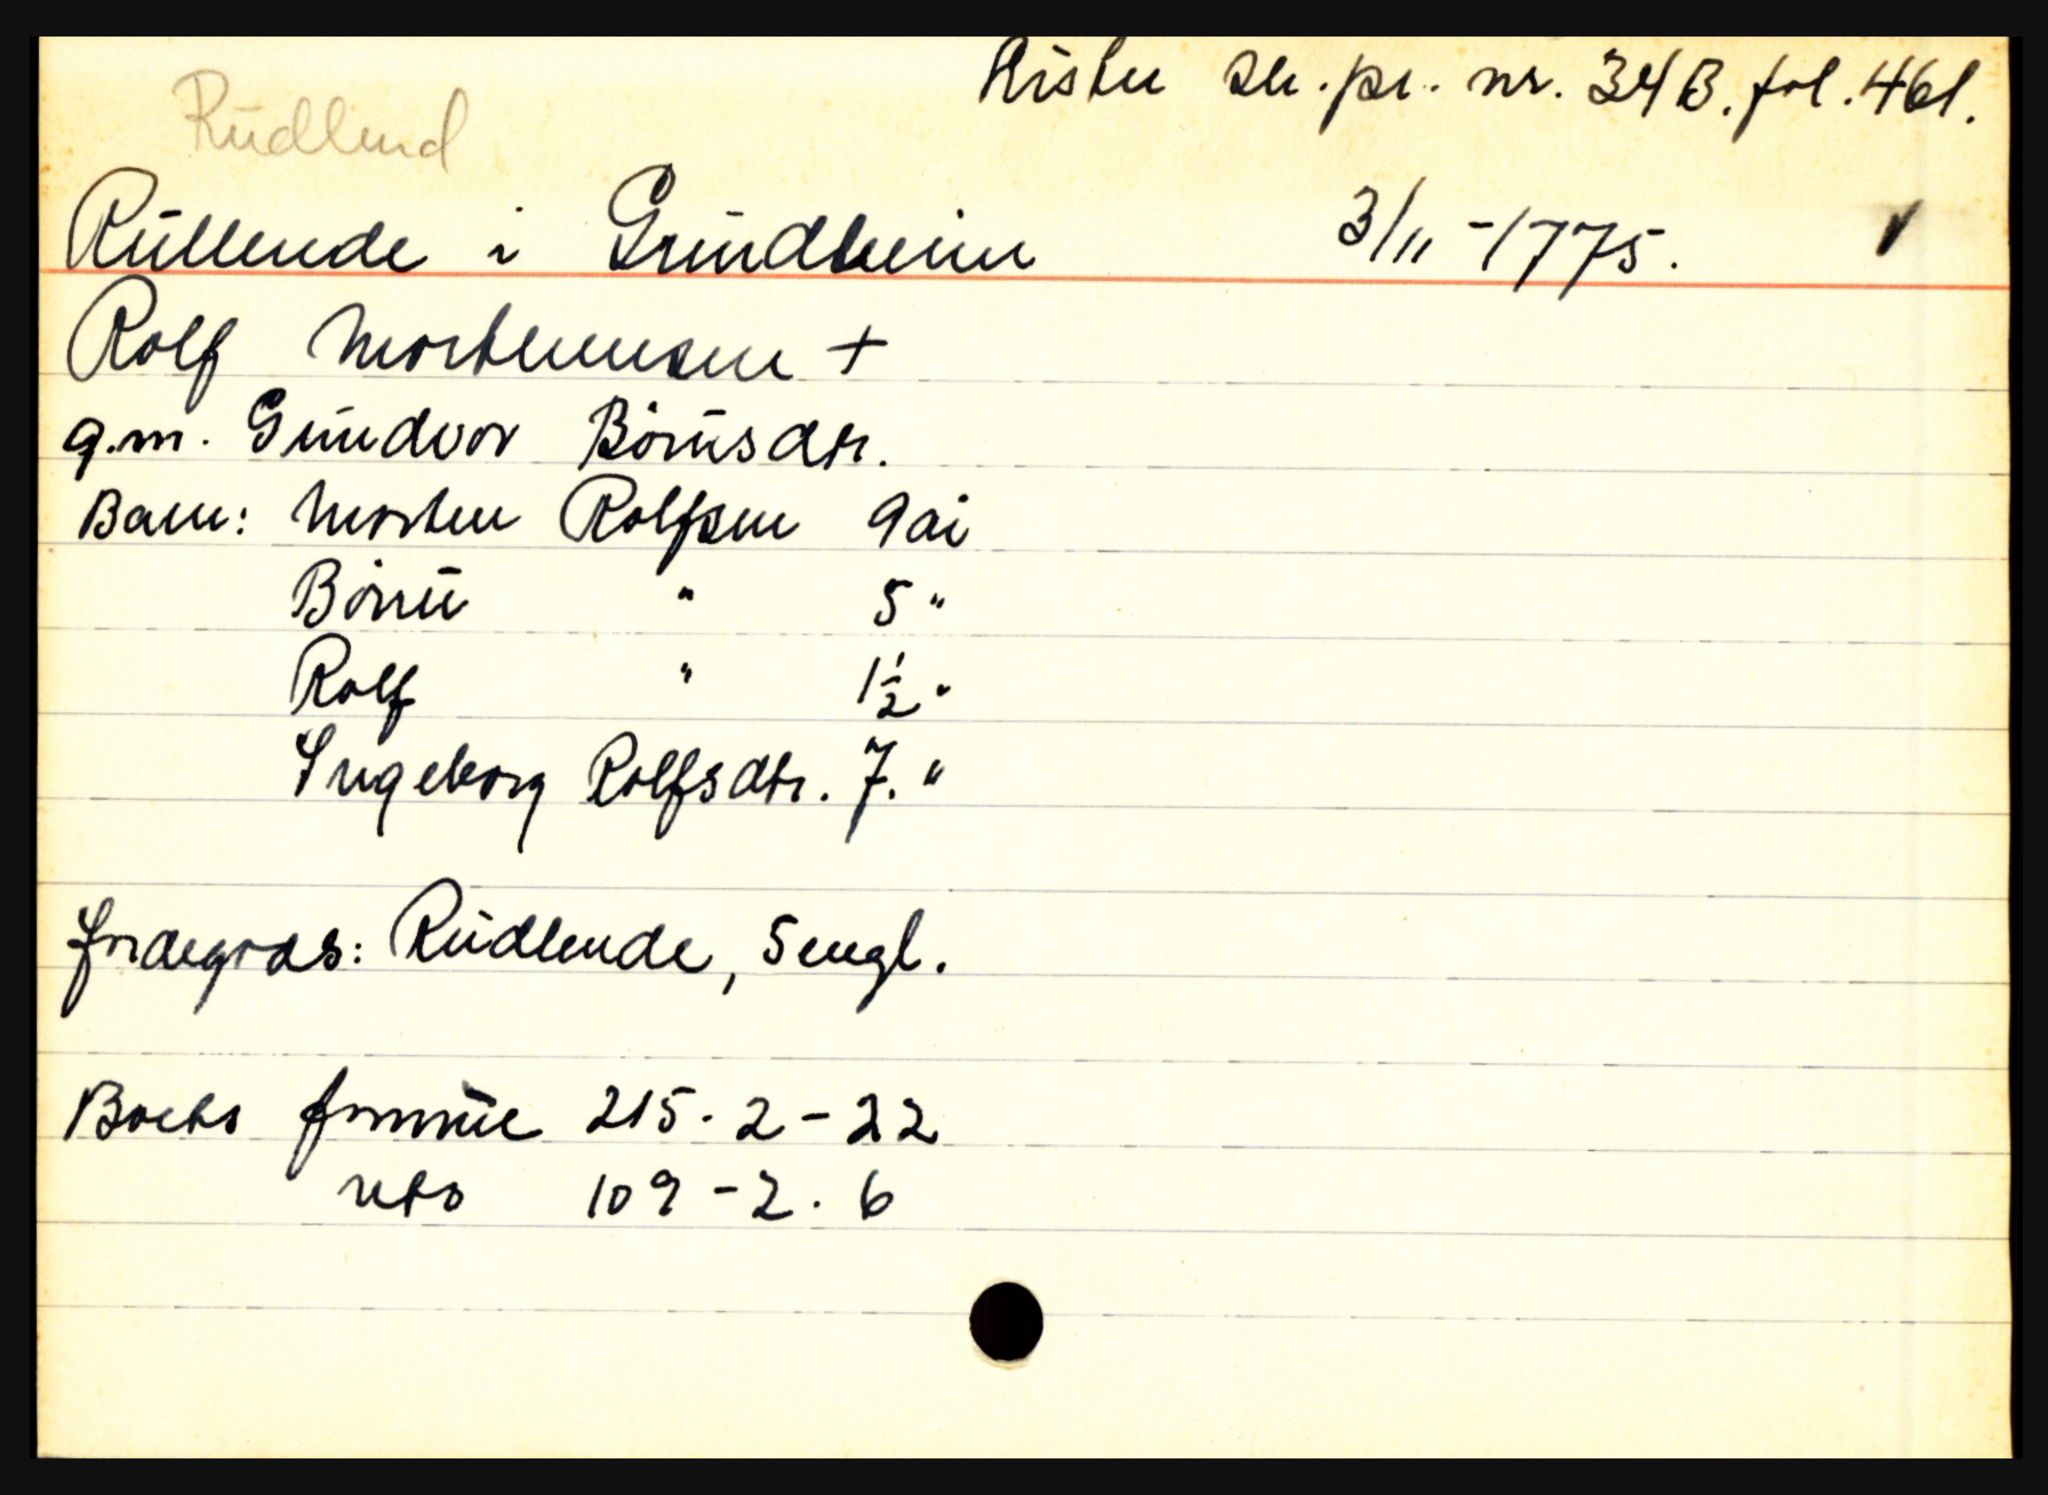 Lister sk.pr. nr. 34 B. fol. 461.
Rudlend
Rullende i Grindheim 3/11-1775. v
Rolf Mortensen +
g.m. Gundvor Börusdtr.
Barn: Morten Rolfsen 9 år
Böru " 5 "
Rolf " 1½ "
Ingeborg Rolfsdtr. 7. "
Jordegods: Rudlende, 5 engl.
Boets formue 215-2-22
nto 109-2.6